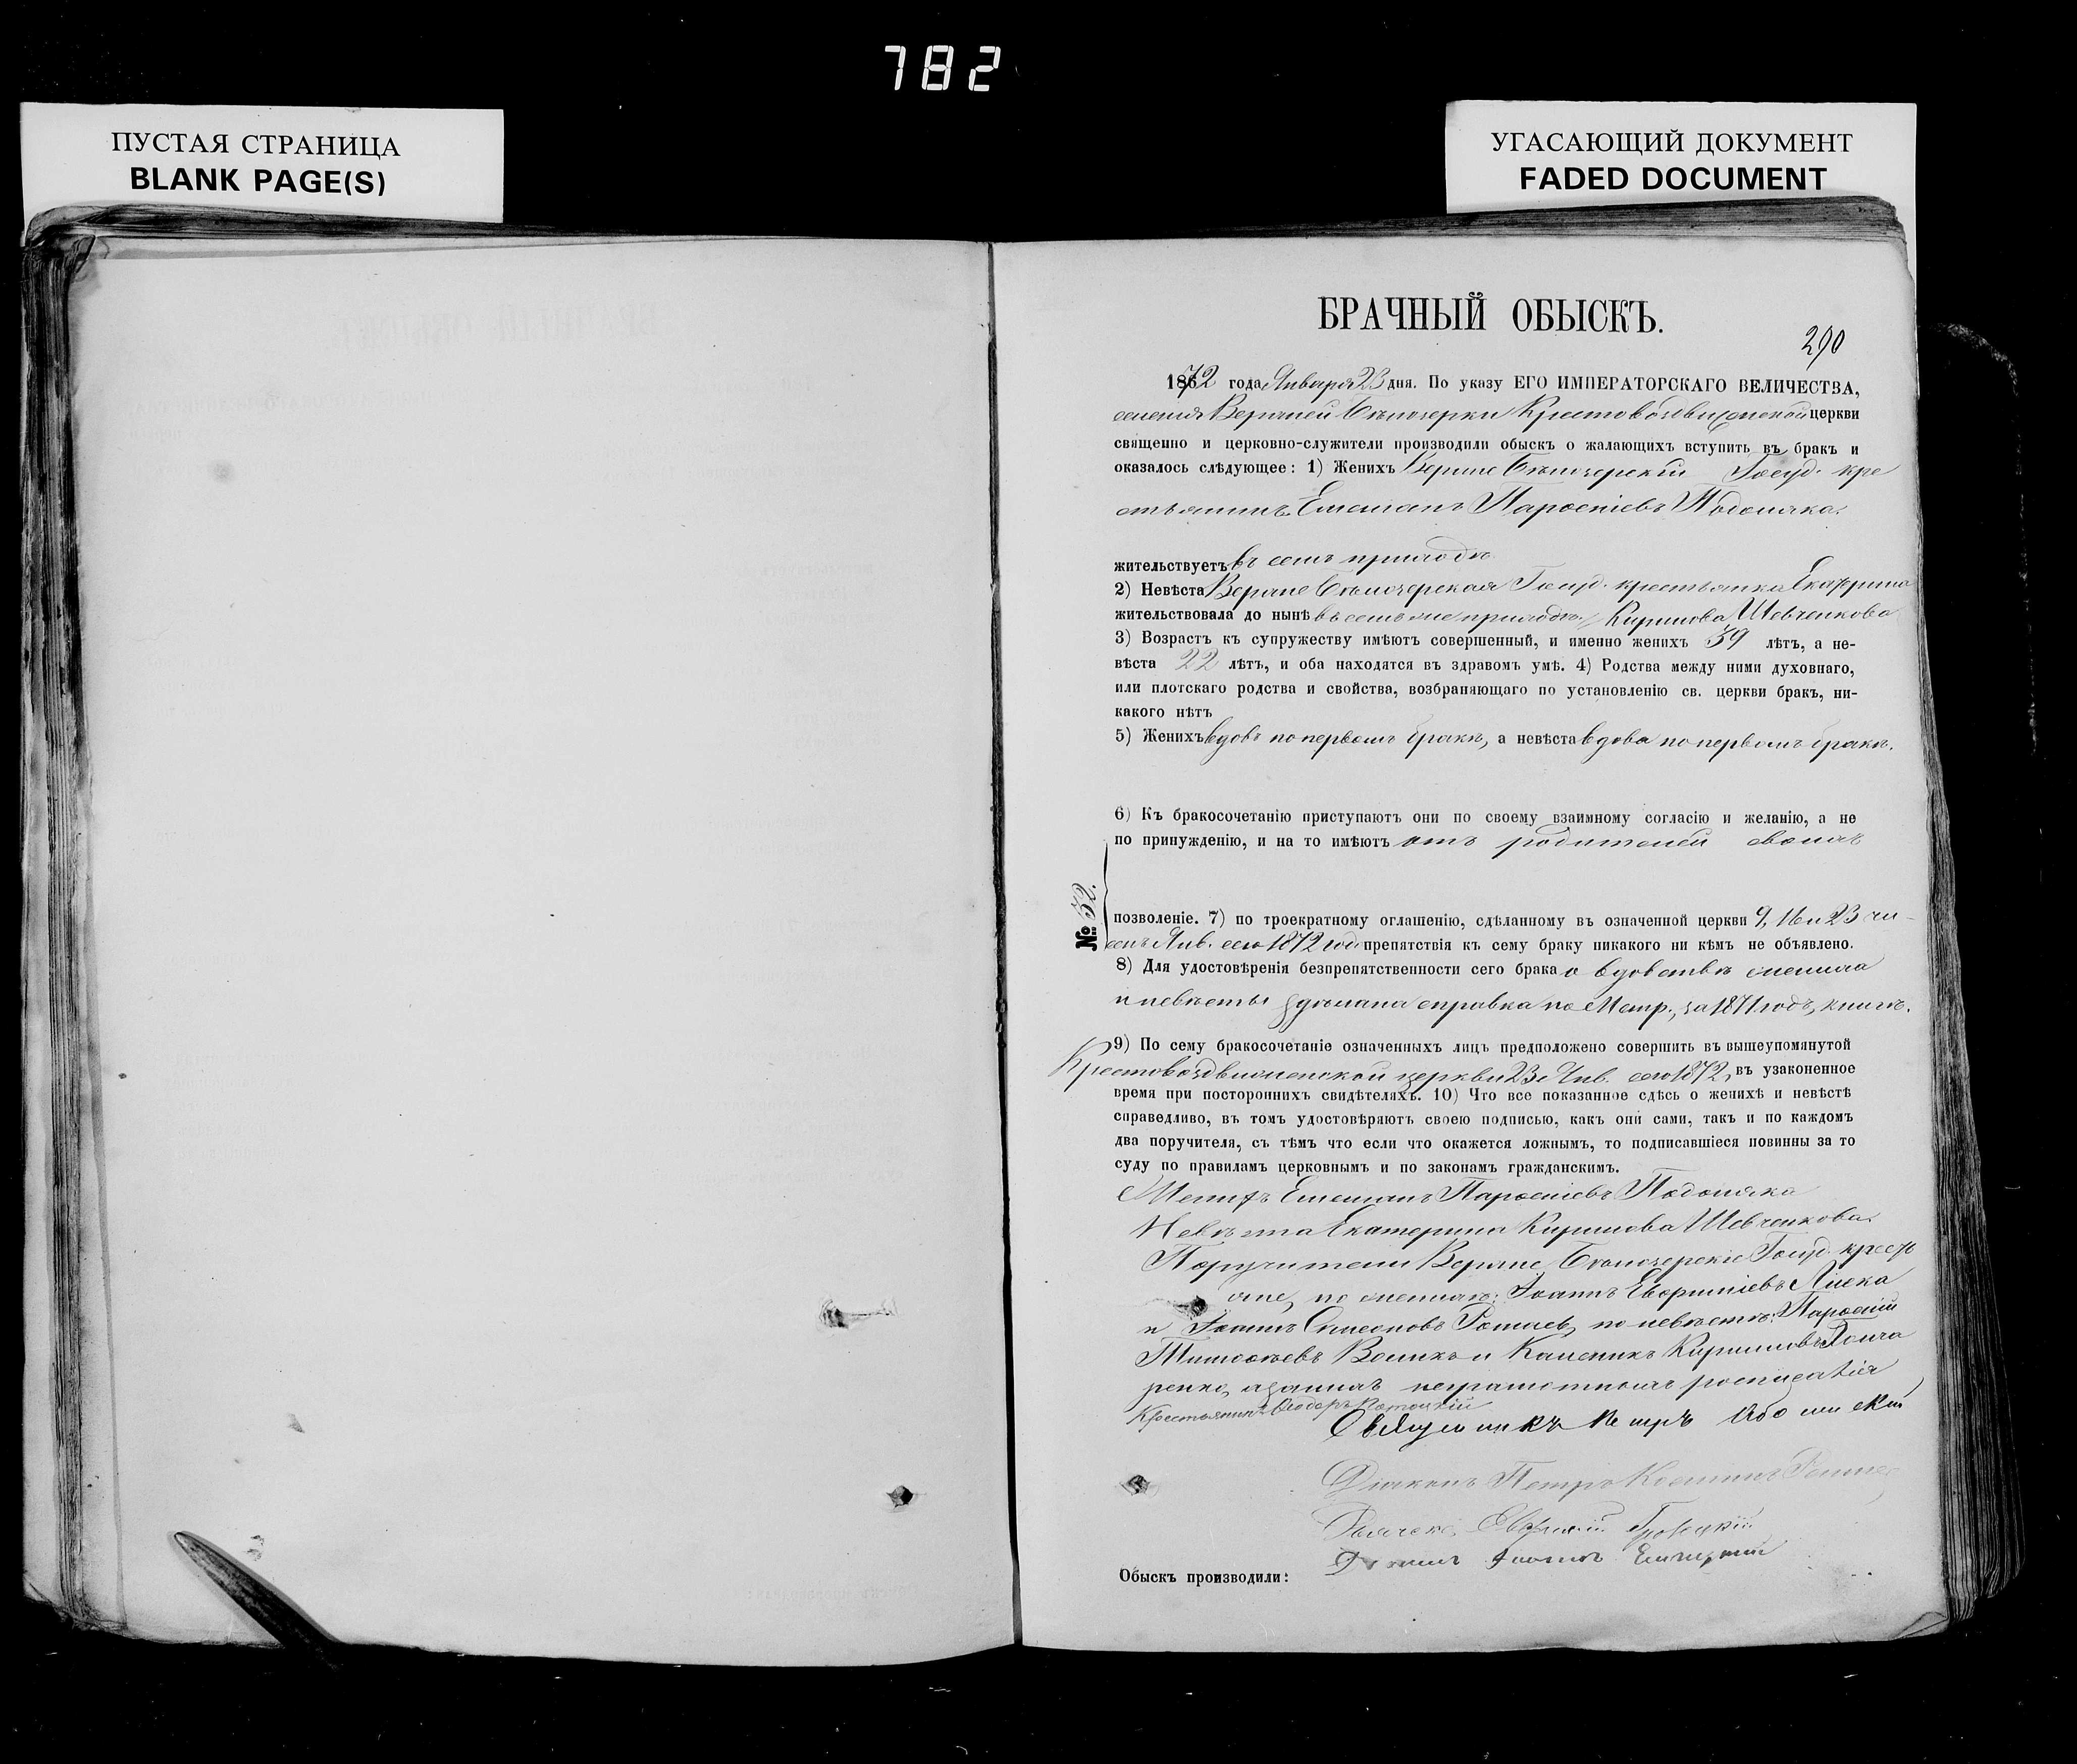 782
ПУСТАЯ СТРАНИЦА
BLANK PAGE(S)
УГАСАЮЩИЙ ДОКУМЕНТ
FADED DOCUMENT
БРАЧНЫЙ ОБЫСКЪ.
290
1872 года Января 23 дня. По указу ЕГО ИМПЕРАТОРСКАГО ВЕЛИЧЕСТВА,
селенія Верхней Бѣлозерки Крестовоздвиженской церкви
священно и церковно-служители производили обыскъ о жалающихъ вступить въ бракъ и
оказалось слѣдующее: 1) Женихъ Верхне Бѣлозерскій Госуд. кре
стьянинъ Емеліанъ Пароеніевъ Подоляка.
жительствуетъ въ семъ приходѣ
2) Невѣста Верхне Бѣлозерская Госуд. крестьянка Екатерина
жительствовала до нынѣ въ семъ же приходѣ. Кирилова Шевченкова
3) Возрастъ къ супружеству имѣютъ совершенный, и именно женихъ 39 лѣтъ, а не-
вѣста 22 лѣтъ, и оба находятся въ здравомъ умѣ. 4) Родства между ними духовнаго,
или плотскаго родства и свойства, возбраняющаго по установленію св. церкви бракъ, ни-
какого нѣтъ
5) Женихъ вдовъ по первомъ бракѣ, а невѣста вдова по первомъ бракѣ.
6) Къ бракосочетанію приступаютъ они по своему взаимному согласію и желанію, а не
по принужденію, и на то имѣютъ отъ родителей своихъ
№ 52.
позволеніе. 7) по троекратному оглашенію, сдѣланному въ означенной церкви 9, 16 и 23 чи-
селъ Янв. сего 1872 года препятствія къ сему браку никакого ни кѣмъ не объявлено.
8) Для удостовѣренія безпрепятственности сего брака о вдовствѣ жениха
и невѣсты сдѣлана справка по Метр., за 1871 годъ, книгѣ.
9) По сему бракосочетаніе означенныхъ лицъ предположено совершить въ вышеупомянутой
Крестовоздвиженской церкви 23 Янв. сего 1872, въ узаконенное
время при постороннихъ свидѣтеляхъ. 10) Что все показанное сдѣсь о женихѣ и невѣстѣ
справедливо, въ томъ удостовѣряютъ своею подписью, какъ они сами, такъ и по каждомъ
два поручителя, съ тѣмъ что если что окажется ложнымъ, то подписавшіеся повинны за то
суду по правиламъ церковнымъ и по законамъ гражданскимъ.
Женихъ Емеліанъ Пароеніевъ Подоляка
Невѣста Екатерина Кирилова Шевченкова.
Поручители Верхне Бѣлозерскіе Госуд. крестъ
яне, по женихѣ: Іоаннъ Евфиміевъ
и Іоаннъ Симеоновъ по невѣстѣ: Пароеній
Тимоѳеевъ Великъ и Каленикъ Кирилловъ Гонча
ренко, а за нихъ неграмотныхъ росписался
Крестьянинъ Ѳеодоръ
Священникъ Петръ
Діаконъ Петръ
Іоаннъ
Обыскъ производили: